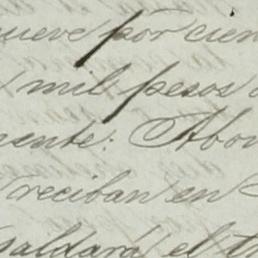 ueve por cien
mil pesos
mente: Abon
reciban en
saldará el